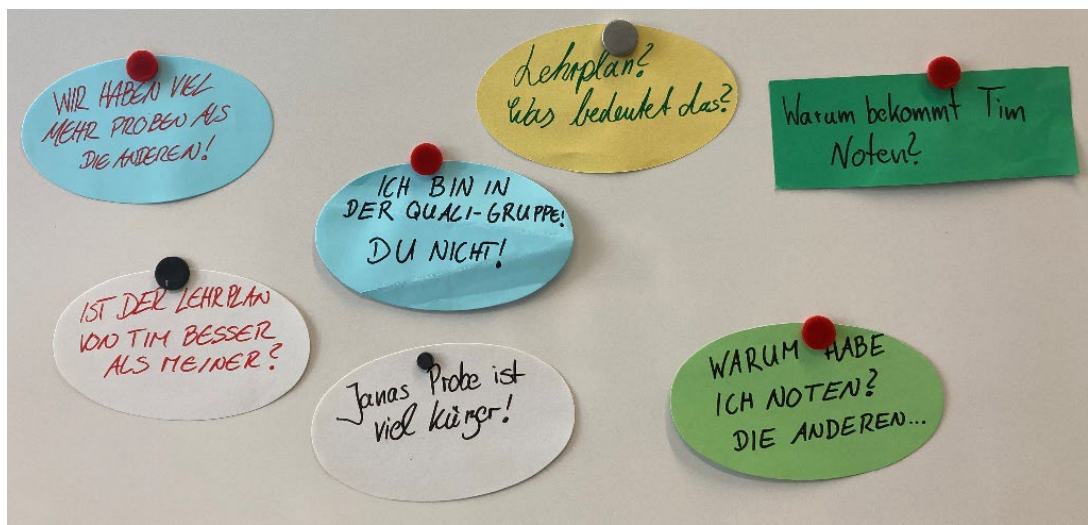 WIR HABEN VIEL
MEHR PROBEN ALS
DIE ANDEREN!
Lehrplan?
Was bedeutet das?
Warum bekommt Tim
Noten?
ICH BIN IN
DER QUALI-GRUPPE!
DU NICHT!
IST DER LEHRPLAN
VON TIM BESSER
ALS MEINER?
Janas Probe ist
viel kürzer!
WARUM HABE
ICH NOTEN?
DIE ANDEREN...